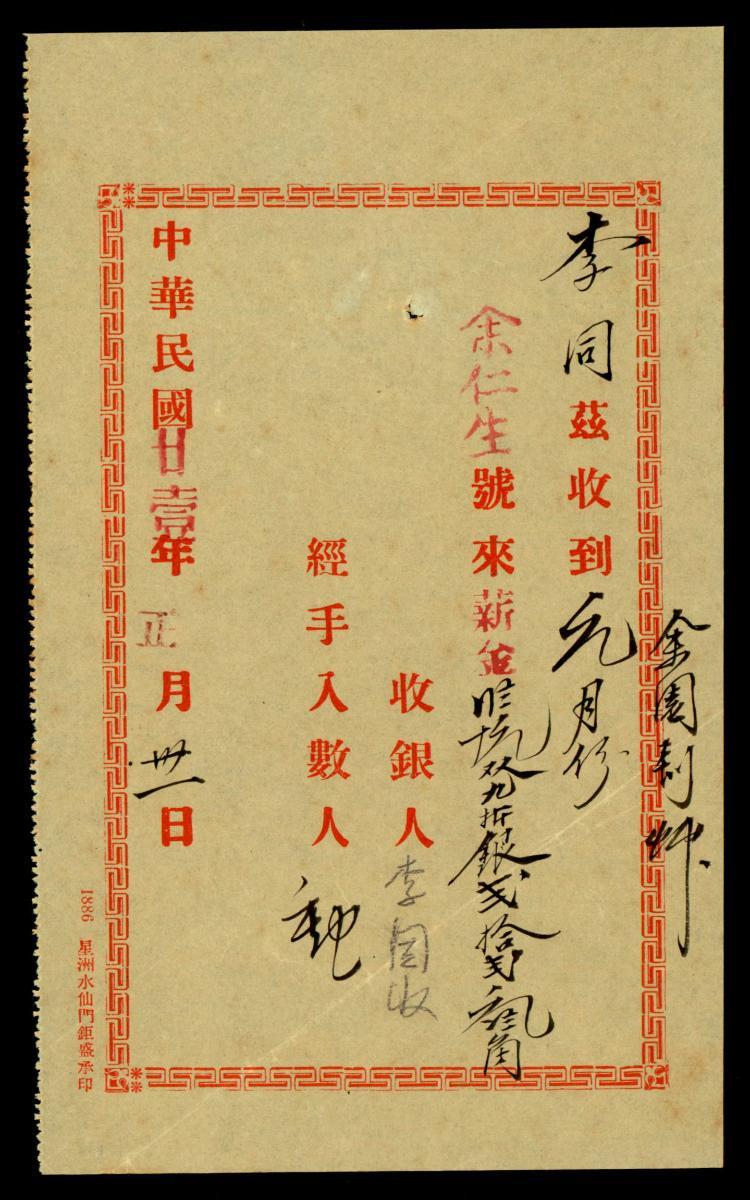 余園割艸
李同茲收到元月份
余仁生號來薪金双九折銀弍拾弍角
收銀人李同收
經手入數人
中華民國廿壹年正月卅一日
1886 星洲水仙門鉅盛承印